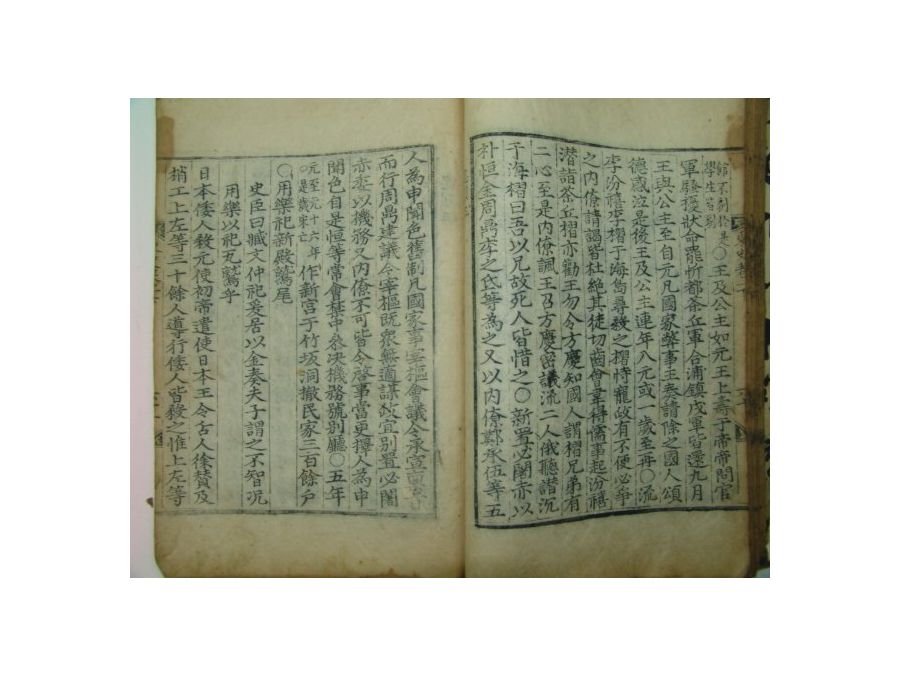 館不剋於是
學生皆到
○王及公主如元王上壽于帝帝問官
軍騷擾狀命罷忻都茶丘軍合浦鎮戍軍皆還九月
王與公主至自元凡國家弊事王奏請除之國人頌
德感泣是後王及公主連年入元或一歲至再○流
李汾禧李槢于海島尋殺之槢恃寵政有不便必爭
之內僚請謁皆杜絶其徒切齒會韋得儒事起汾禧
潛詣茶丘槢亦勸王勿令方慶知國人謂槢兄弟有
二心至是內僚諷王召方慶密議流二人俄聽譖沉
于海槢曰吾以兄故死人皆惜之○新置必闍赤以
朴恒金周鼎李之氐等為之又以內僚鄭承伍等五
人為申聞色舊制凡國家事宰樞會議令承宣
而行周鼎建議今宰樞旣衆無適謀政宜別置必闍
赤委以機務又內僚不可皆令啓事當更擇人為申
聞色自是恒等常會禁中叅决機務號別廳○五年
元至元十六年
○是歲宋亡
作新宮于竹坂洞撤民家三百餘戶
○用樂祀新殿鷲尾
史臣曰臧文仲祀爰居以金奏夫子謂之不智况
用樂以祀瓦鷲乎
日本倭人殺元使初帝遣使日本王令舌人徐賛及
捎工上左等三十餘人導行倭人皆殺之惟上左等